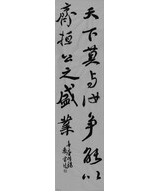 天下莫与汝争能以
齐桓公之盛业